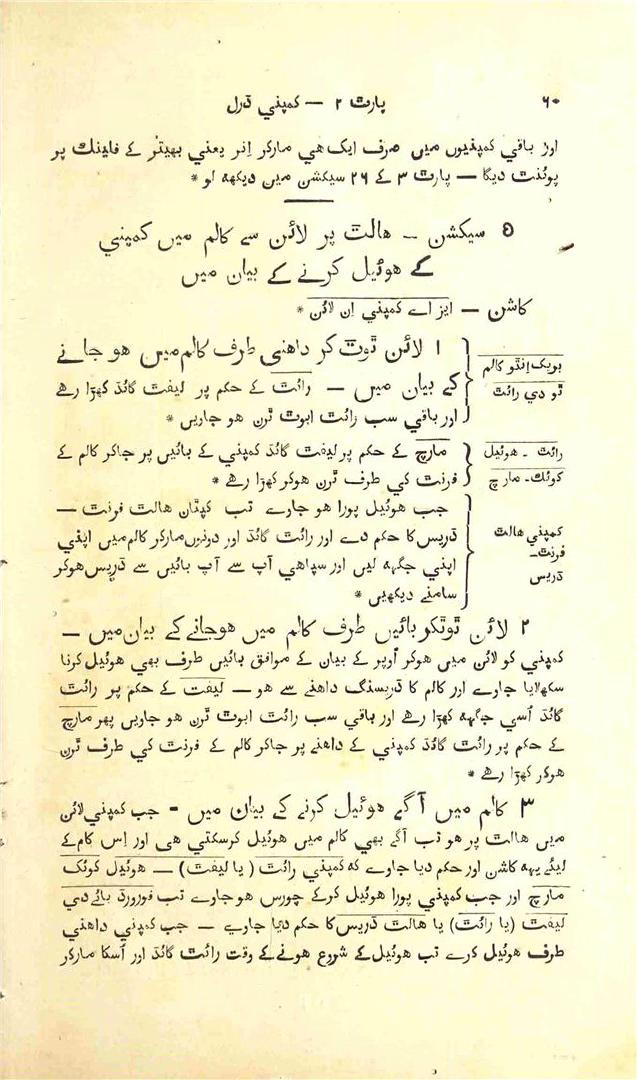 ۶۰
پارٹ ۲ — کمپني ڈرل
اور باقي کمپنیوں میں صرف ایک هي مارکر اِنر یعني بھیتر کے فلینک پر
پوئنٹ دیگا — پارٹ ۳ کے ۲۶ سیکشن میں دیکھه لو *
۵ سیکشن - هالٹ پر لائن سے کالم میں کمپني
کے هوئیل کرنے کے بیان میں
کاشن — ایز اے کمپني اِن لائن *
بویک اِنٹو کالم
ٹو دي رائٹ
۱ لائن ٹوٹ کر داهني طرف کالم میں هو جانے
کے بیان میں — رائٹ کے حکم پر لیفٹ گائڈ کھڑا رهے
اور باقي سب رائٹ ابوٹ ٹرن هو جاویں *
رائٹ - هوئیل
کوئک - مارچ
مارچ کے حکم پر لیفٹ گائڈ کمپني کے بائیں پر جاکر کالم کے
فرنٹ کي طرف ٹرن هوکر کھڑا رهے *
کمپني هالٹ
فرنٹ-
ڈریس
جب هوئیل پورا هو جاوے تب کپتان هالٹ فرنٹ —
ڈریس کا حکم دے اور رائٹ گائڈ اور دونوں مارکر کالم میں اپني
اپني جگهه لیں اور سپاهي آپ سے آپ بائیں سے ڈریس هوکر
سامنے دیکھیں *
۲ لائن ٹوٹکر بائیں طرف کالم میں هوجانے کے بیان میں —
کمپني کو لائن میں هوکر اُوپر کے بیان کے موافق بائیں طرف بھي هوئیل کرنا
سکھلایا جاوے اور کالم کا ڈریسنگ داهنے سے هو — لیفٹ کے حکم پر رائٹ
گائڈ اُسي جگهه کھڑا رهے اور باقي سب رائٹ ابوٹ ٹرن هو جاویں پھر مارچ
کے حکم پر رائٹ گائڈ کمپني کے داهنے پر جاکر کالم کے فرنٹ کي طرف ٹرن
هوکر کھڑا رهے *
۳ کالم میں آگے هوئیل کرنے کے بیان میں - جب کمپني لائن
میں هالٹ پر هو تب آگے بھي کالم میں هوئیل کرسکتي هی اور اِس کام کے
لیئے یهه کاشن اور حکم دیا جاوے که کمپني رائٹ ( یا لیفٹ) — هوئیل کوئک
مارچ اور جب کمپني پورا هوئیل کرکے چورس هو جاوے تب فورورڈ بائے دي
لیفٹ (یا رائٹ) یا هالٹ ڈریس کا حکم دیا جاوے — جب کمپني داهني
طرف هوئیل کرے تب هوئیل کے شروع هونے کے وقت رائٹ گائڈ اور اُسکا مارکر